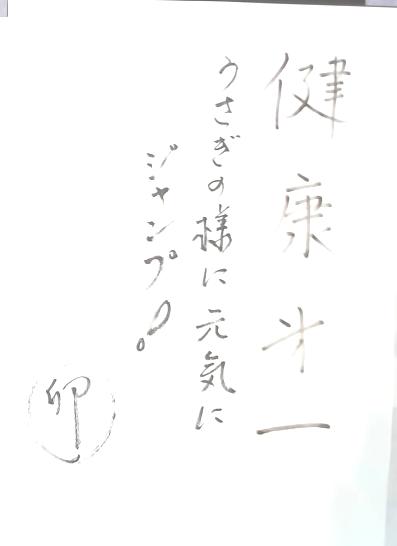 健康才一
うさぎの様に元気に
ジャンプ!
卯